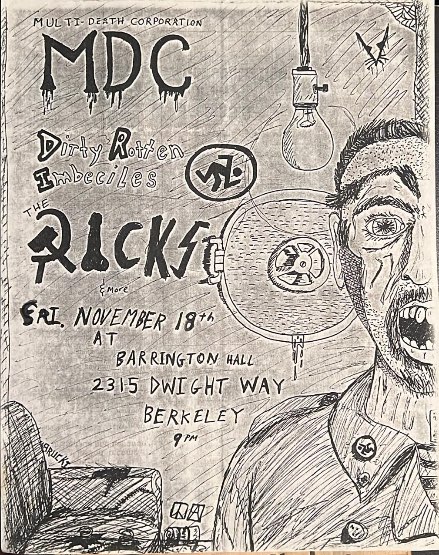 MULTI-DEATH CORPORATION
MDC
Dirty Rotten
Imbeciles
THE
DICKS
& more
FRI. NOVEMBER 18th
AT
BARRINGTON HALL
2315 DWIGHT WAY
BERKELEY
9 PM